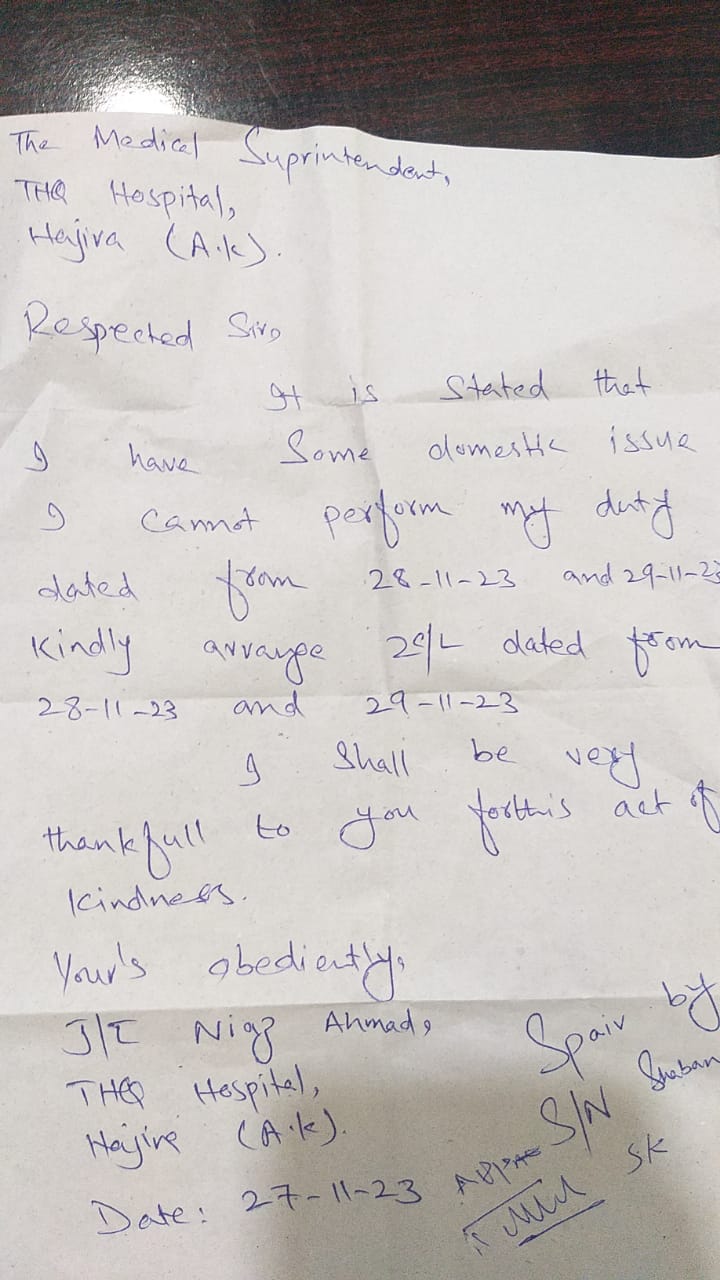 The Medical Suprintendent,
THQ Hospital,
Hajira (A.k).
Respected Sir,
It is Stated that
I have Some domestic issue
I cannot perform my duty
dated from 28-11-23 and 29-11-23
Kindly arrange 2c/L dated from
28-11-23 and 29-11-23
I Shall be very
thankfull to you forthis act of
kindness.
Your's obediently,
J/T Niaz Ahmad,
THQ Hospital,
Hajira (A.k).
Date: 27-11-23
Spair by
S/N Shaban
SK